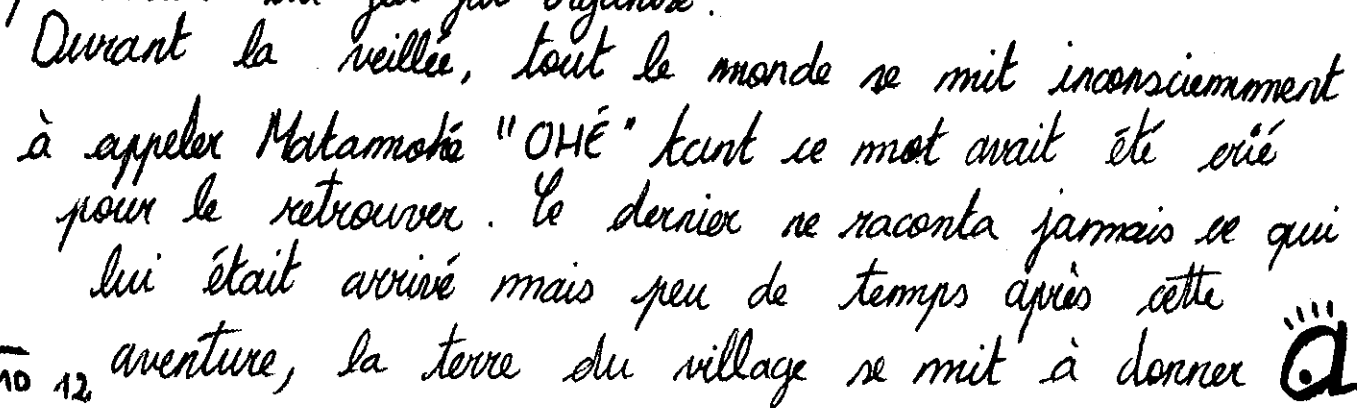 organisé.
Durant la veillée, tout le monde se mit inconsciemment
à appeler Matamohé "OHÉ" tant ce mot avait été crié
pour le retrouver. Ce dernier ne raconta jamais ce qui
lui était arrivé mais peu de temps après cette
aventure, la terre du village se mit à donner
10 12